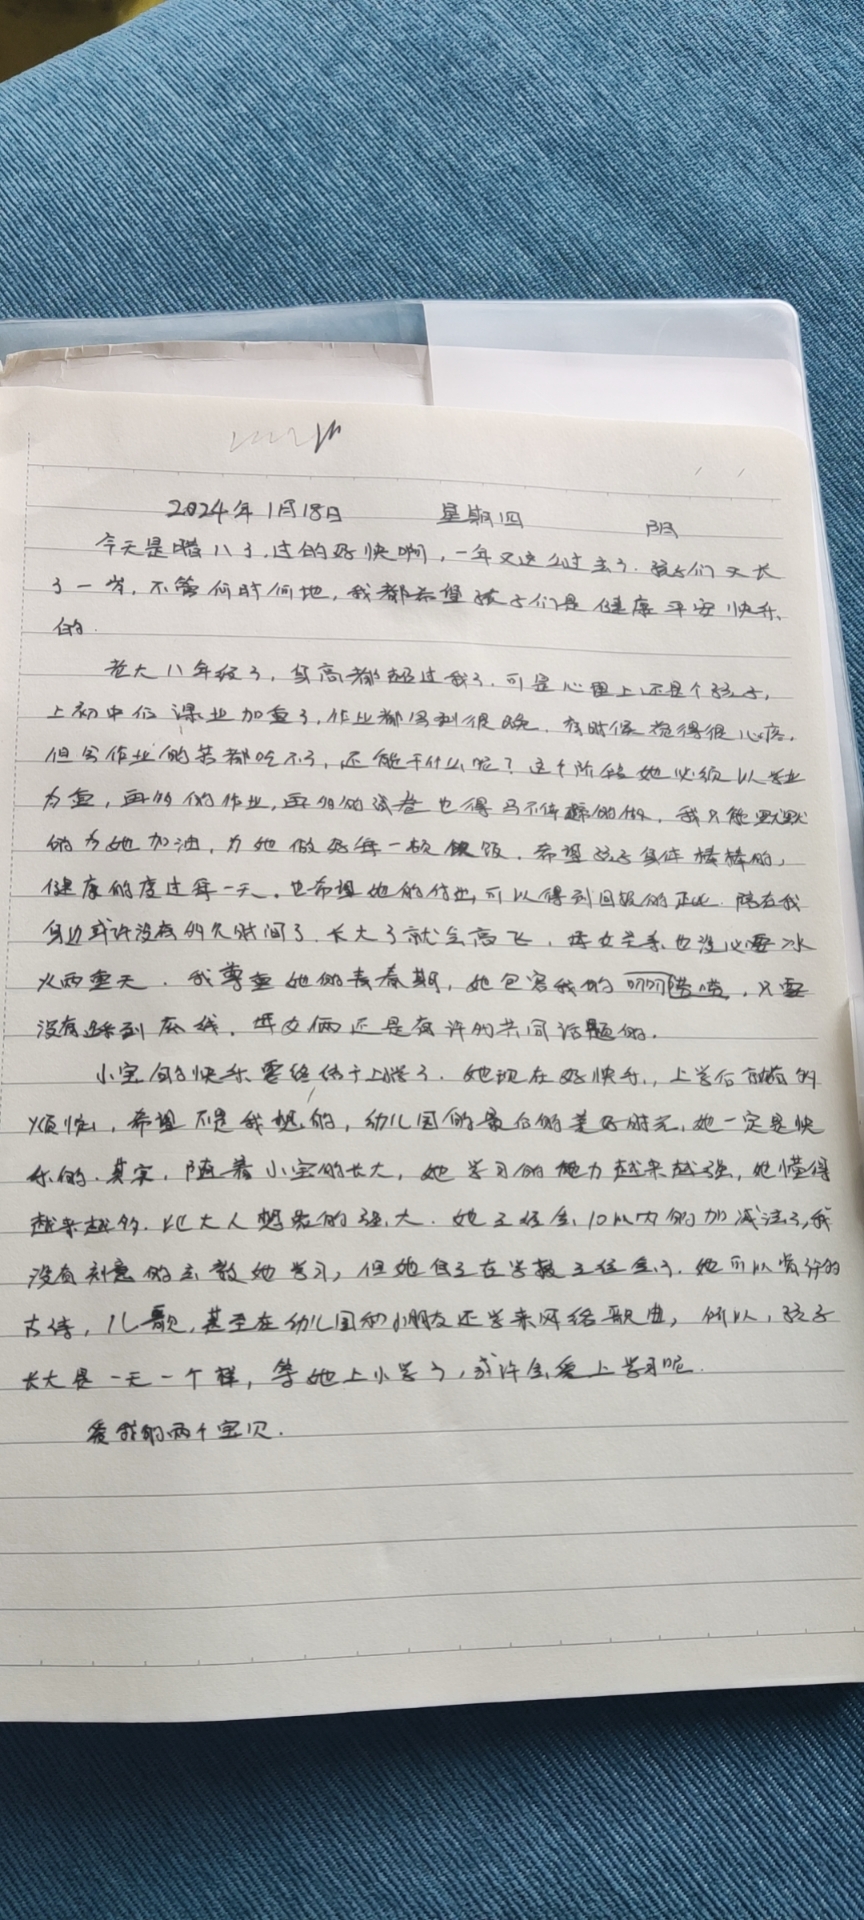 2024年1月18日 星期四 阴
今天是腊八了,过的好快啊,一年又这么过去了.孩子们又长
了一岁,不管何时何地,我都希望孩子们是健康平安快乐
的.
老大八年级了,身高都超过我了,可是心里上还是个孩子,
上初中后课业加重了,作业都写到很晚.有时候觉得很心疼,
但写作业的苦都吃不了,还能干什么呢?这个阶段她必须以学业
为重,再多的作业,再多的试卷也得马不停蹄的做,我只能默默
的为她加油,为她做好每一顿饭.希望孩子身体棒棒的,
健康的度过每一天.也希望她的付出,可以得到回报的正比.陪在我
身边或许没有多久时间了.长大了就会高飞,母女关系也没必要冰
火两重天.我尊重她的青春期,她包容我的叨叨喳喳,只要
没有踩到底线,母女俩还是有许多共同话题的.
小宝的快乐要终结于上学了.她现在好快乐,上学后就有
烦恼,希望不是我想的,幼儿园的最后的美好时光,她一定是快
乐的.其实,随着小宝的长大,她学习的能力越来越强,她懂得
越来越多.比大人想象的强大.她已经会10以内的加减法了,我
没有刻意的去教她学习,但她自己在学校已经会了.她可以背许多
古诗,儿歌,甚至在幼儿园和小朋友还学来网络歌曲,所以,孩子
长大是一天一个样,等她上小学了,或许会爱上学习呢.
爱我的两个宝贝.